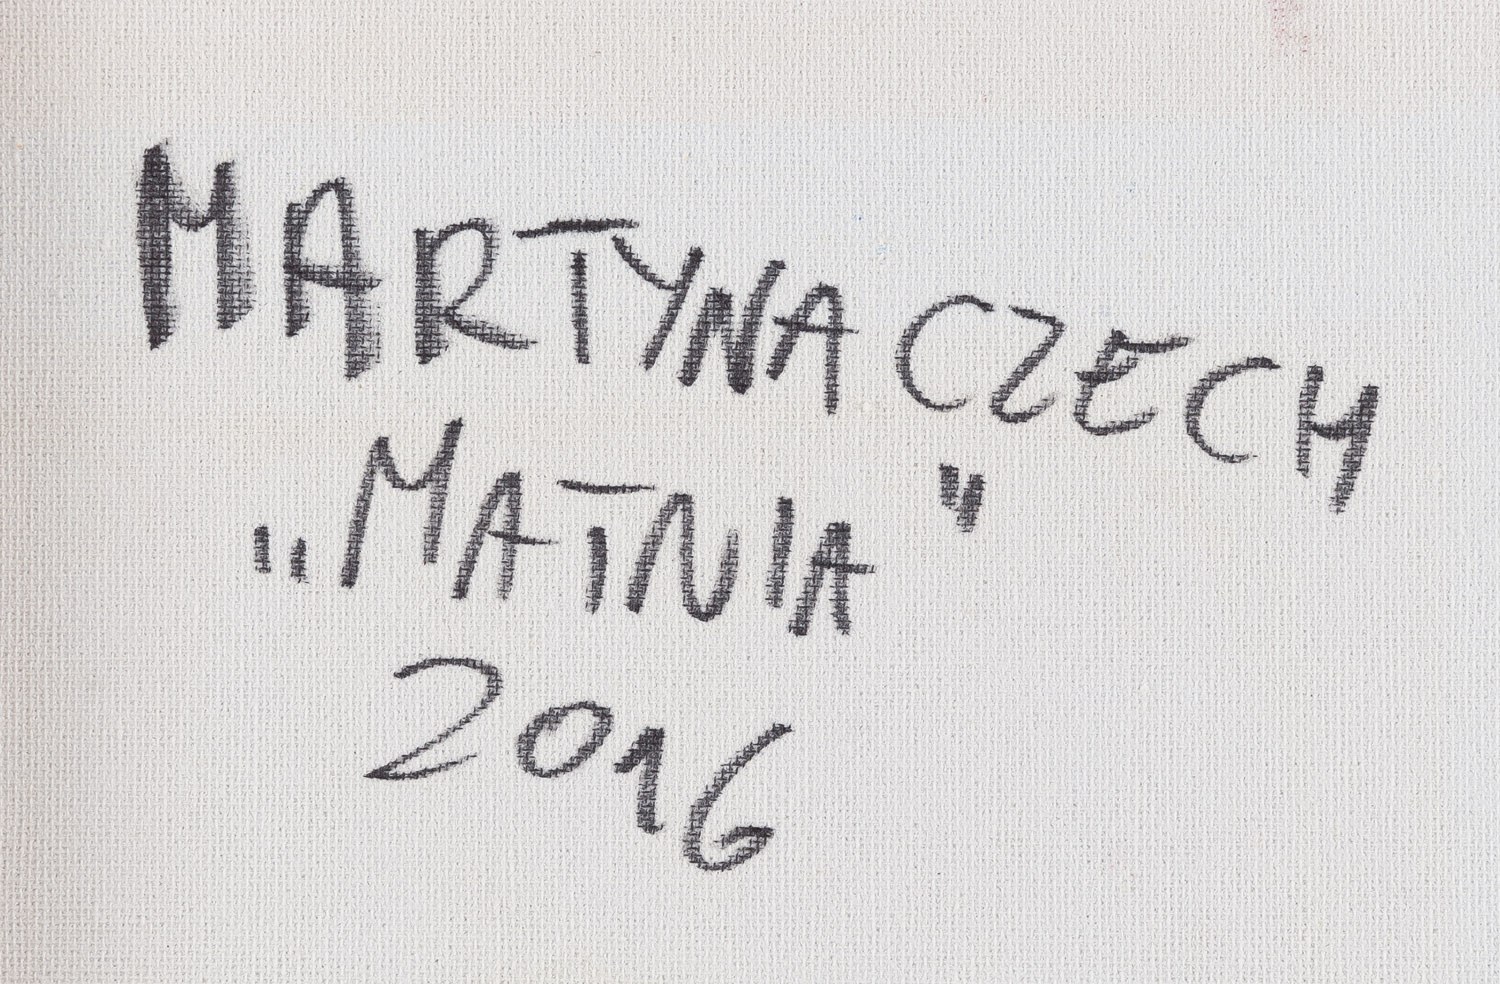 MARTYNA CZECH
„MATNIA"
2016